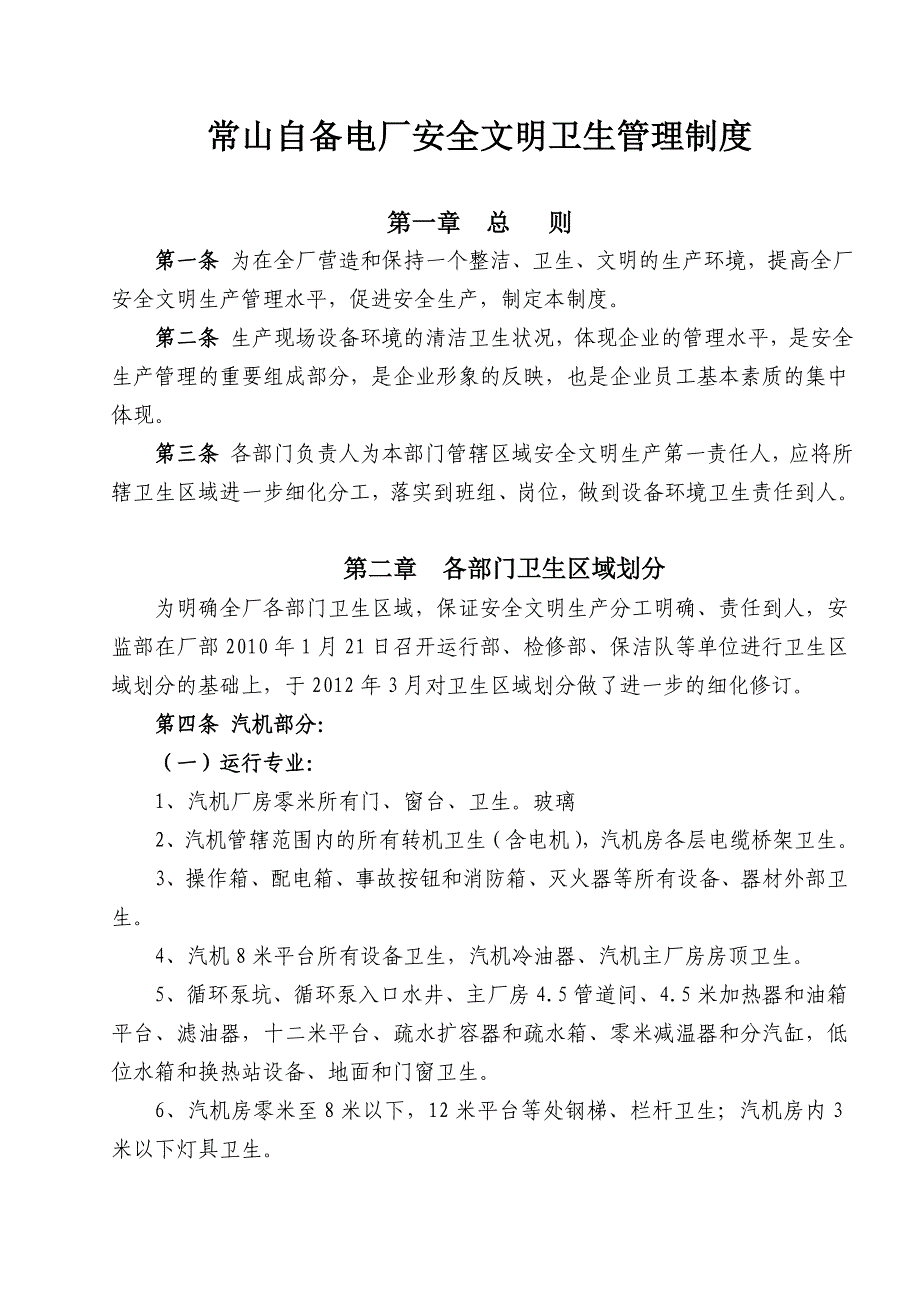 常山自备电厂安全文明卫生管理制度
第一章 总 则
第一条 为在全厂营造和保持一个整洁、卫生、文明的生产环境，提高全厂
安全文明生产管理水平，促进安全生产，制定本制度。
第二条 生产现场设备环境的清洁卫生状况，体现企业的管理水平，是安全
生产管理的重要组成部分，是企业形象的反映，也是企业员工基本素质的集中
体现。
第三条 各部门负责人为本部门管辖区域安全文明生产第一责任人，应将所
辖卫生区域进一步细化分工，落实到班组、岗位，做到设备环境卫生责任到人。
第二章 各部门卫生区域划分
为明确全厂各部门卫生区域，保证安全文明生产分工明确、责任到人，安
监部在厂部 2010 年 1 月 21 日召开运行部、检修部、保洁队等单位进行卫生区
域划分的基础上，于 2012 年 3 月对卫生区域划分做了进一步的细化修订。
第四条 汽机部分：
（一）运行专业：
1、汽机厂房零米所有门、窗台、卫生。玻璃
2、汽机管辖范围内的所有转机卫生（含电机），汽机房各层电缆桥架卫生。
3、操作箱、配电箱、事故按钮和消防箱、灭火器等所有设备、器材外部卫
生。
4、汽机 8 米平台所有设备卫生，汽机冷油器、汽机主厂房房顶卫生。
5、循环泵坑、循环泵入口水井、主厂房 4.5 管道间、4.5 米加热器和油箱
平台、滤油器，十二米平台、疏水扩容器和疏水箱、零米减温器和分汽缸，低
位水箱和换热站设备、地面和门窗卫生。
6、汽机房零米至 8 米以下，12 米平台等处钢梯、栏杆卫生；汽机房内 3
米以下灯具卫生。